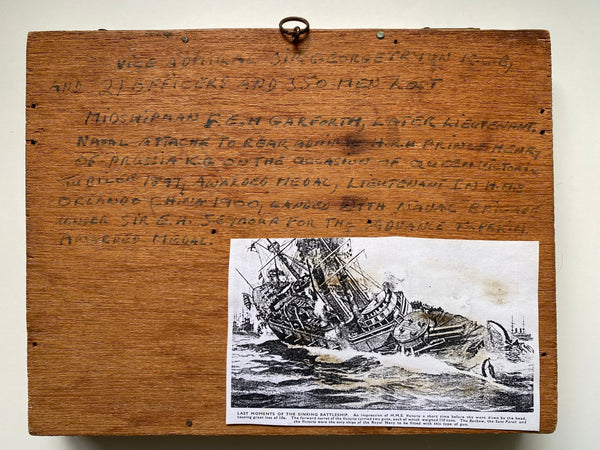 VICE ADMIRAL SIR GEORGE TRYON K.C.B,
AND 21 OFFICERS AND 350 MEN LOST
MIDSHIPMAN F.E.M GARFORTH, LATER LIEUTENANT,
NAVAL ATTACHE TO REAR ADMIRAL H.R.H PRINCE HENRY
OF PRUSSIA K.G ON THE OCCASION OF QUEEN VICTORIA
JUBILEE 1897, AWARDED MEDAL, LIEUTENANT IN H.M.S
ORLANDO CHINA 1900, LANDED WITH NAVAL BRIGADE
UNDER SIR E.H. SEYMOUR FOR THE ADVANCE PEKIN
AWARDED MEDAL.
LAST MOMENTS OF THE SINKING BATTLESHIP. An impression of H.M.S. Victoria a short time before she went down by the head,
causing great loss of life. The forward turret of the Victoria carried two guns, each of which weighed 110 tons. The Benbow, the Sans Pareil and
the Victoria were the only ships of the Royal Navy to be fitted with this type of gun.